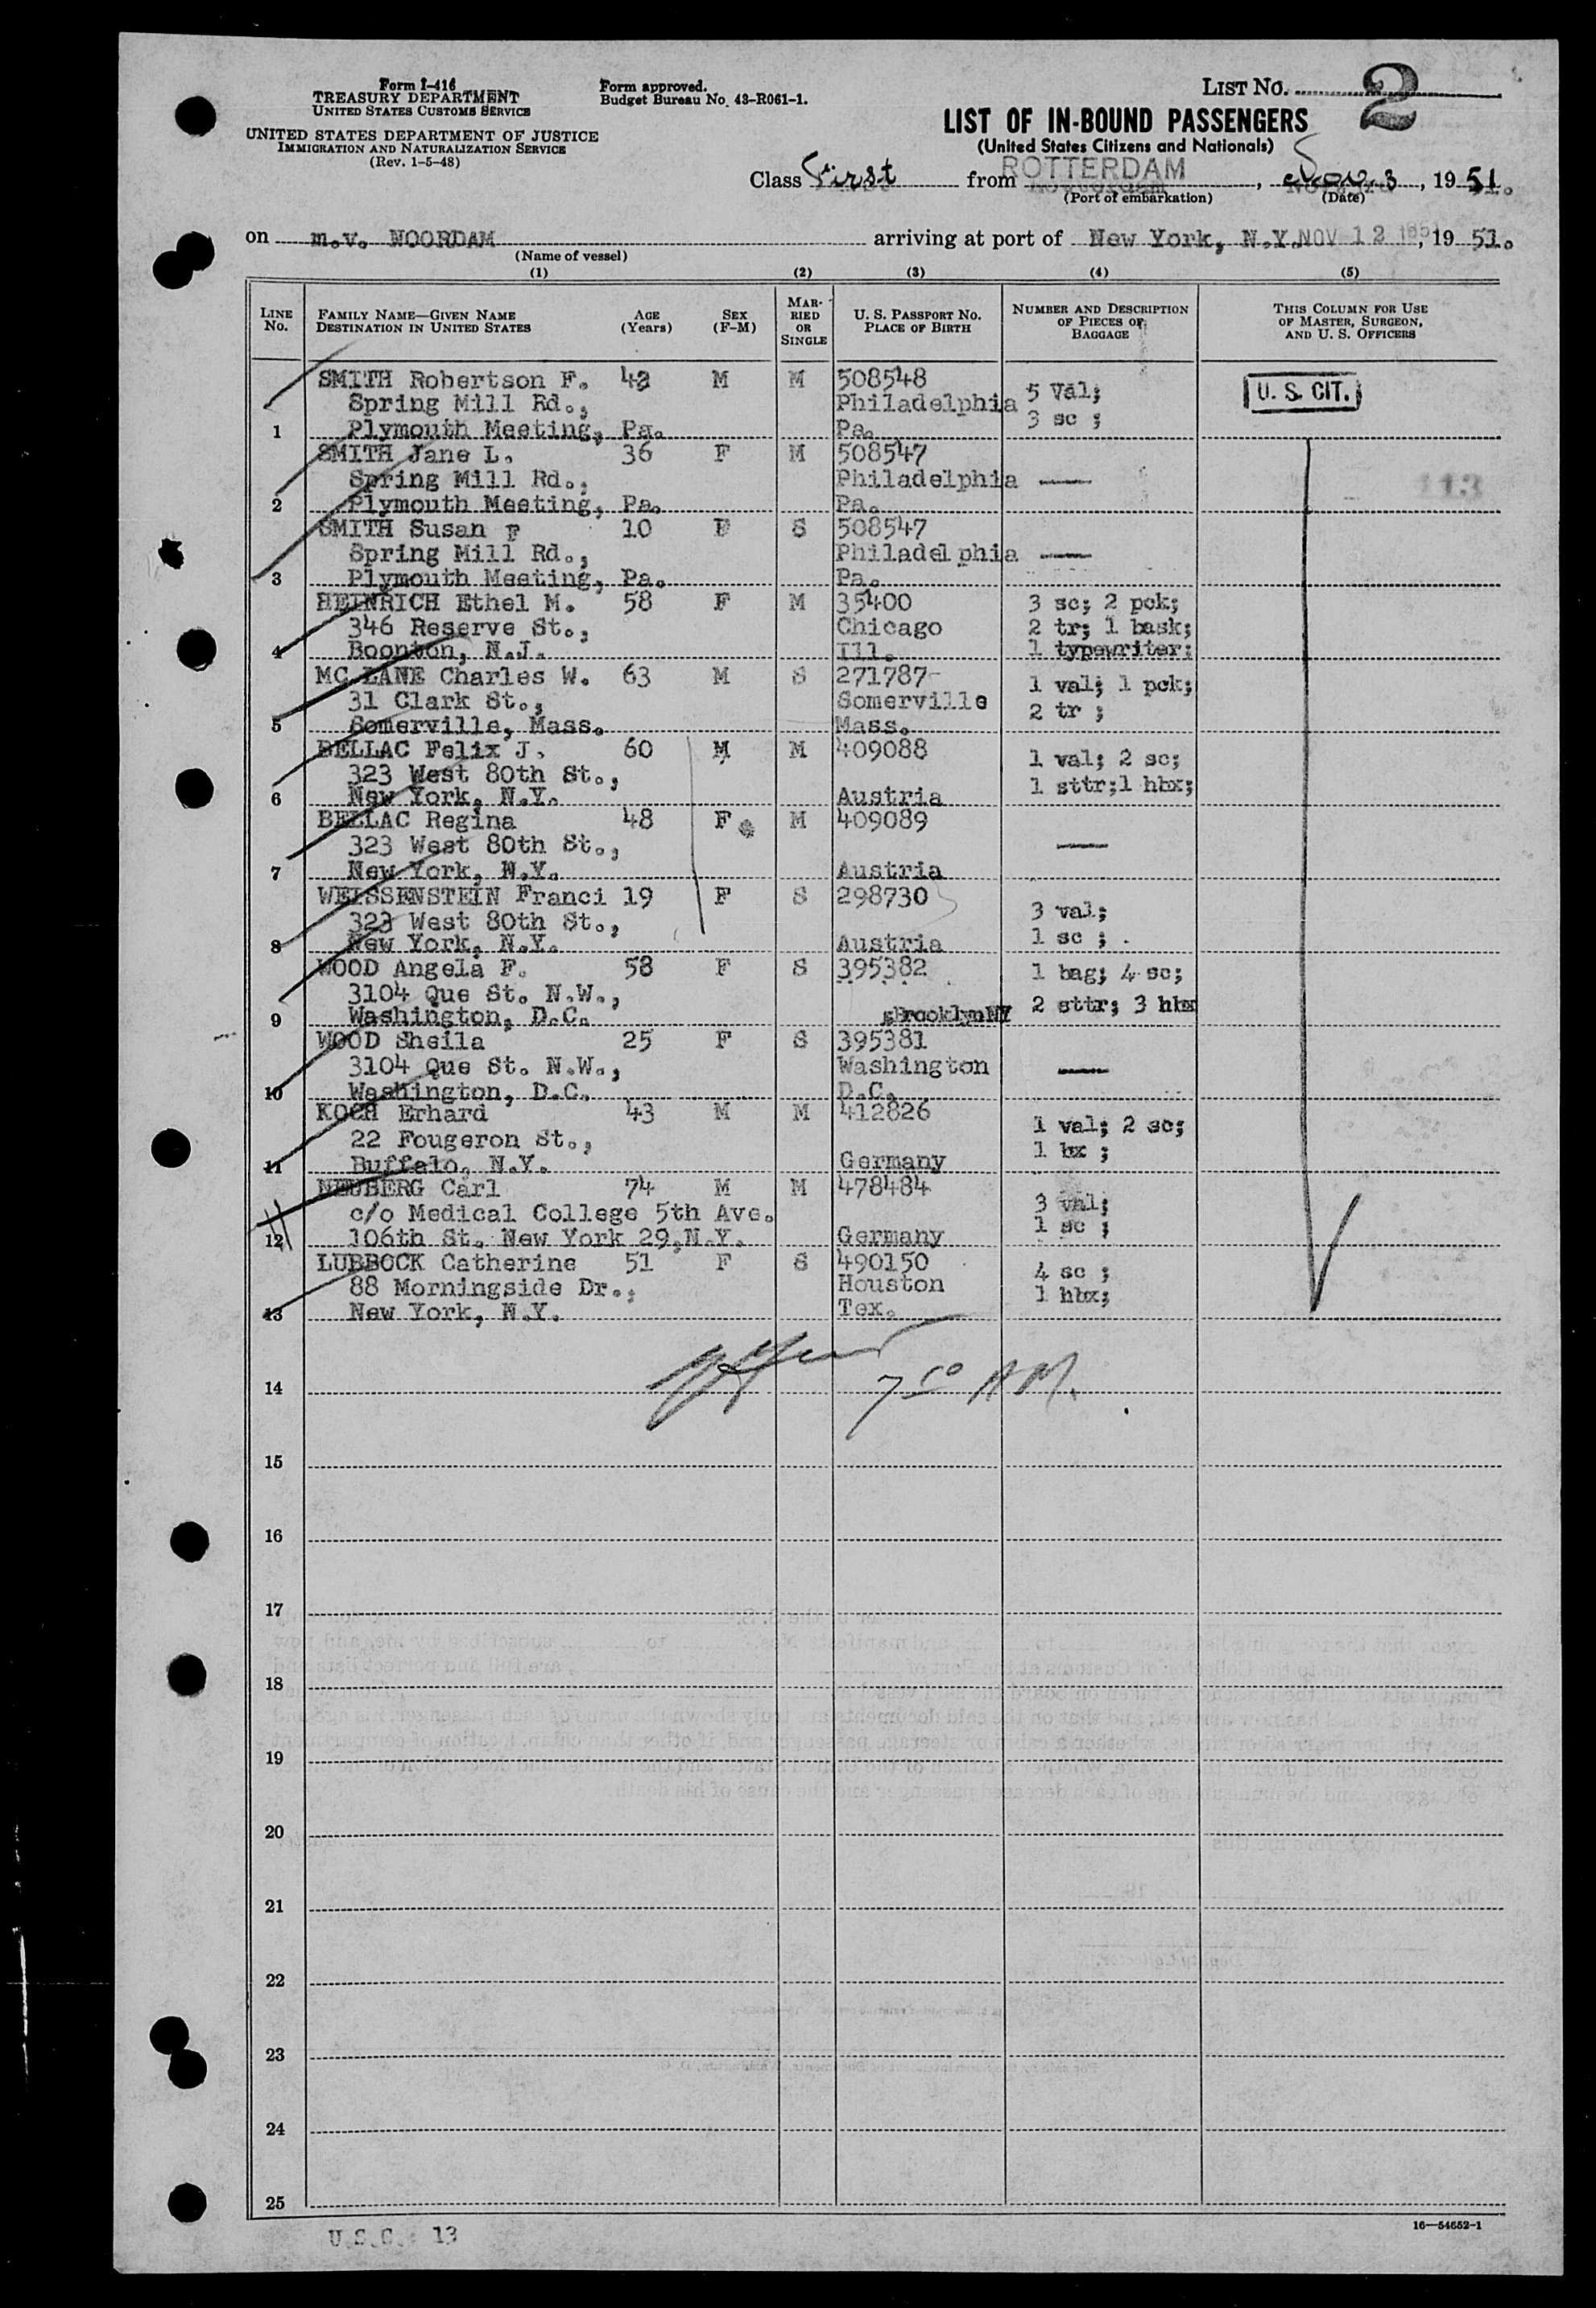 Form I-416
TREASURY DEPARTMENT
UNITED STATES CUSTOMS SERVICE
UNITED STATES DEPARTMENT OF JUSTICE
IMMIGRATION AND NATURALIZATION SERVICE
(Rev. 1-5-48)
Form approved.
Budget Bureau No. 43-R061-1.
LIST NO. 2
LIST OF IN-BOUND PASSENGERS
(United States Citizens and Nationals)
Class First from ROTTERDAM, Nov. 3, 1951.
(Port of embarkation) (Date)
on m.v. NOORDAM arriving at port of New York, N.Y. NOV 12 1951, 1951.
(Name of vessel)
(1) (2) (3) (4) (5)
LINE No. FAMILY NAME—GIVEN NAME DESTINATION IN UNITED STATES AGE (Years) SEX (F-M) MARRIED OR SINGLE U. S. PASSPORT NO. PLACE OF BIRTH NUMBER AND DESCRIPTION OF PIECES OF BAGGAGE THIS COLUMN FOR USE OF MASTER, SURGEON, AND U. S. OFFICERS
SMITH Robertson F. 42 M M 508548
Spring Mill Rd., Philadelphia 5 Val; U. S. CIT.
1 Plymouth Meeting, Pa. Pa. 3 sc ;
SMITH Jane L. 36 F M 508547
Spring Mill Rd., Philadelphia — 113
2 Plymouth Meeting, Pa. Pa.
SMITH Susan F 10 F S 508547
Spring Mill Rd., Philadelphia —
3 Plymouth Meeting, Pa. Pa.
HEINRICH Ethel M. 58 F M 35400 3 sc; 2 pck;
346 Reserve St., Chicago 2 tr; 1 bask;
4 Boonton, N.J. Ill. 1 typewriter;
MC LANE Charles W. 63 M S 271787 1 val; 1 pck;
31 Clark St., Somerville 2 tr ;
5 Somerville, Mass. Mass.
BELLAC Felix J. 60 M M 409088 1 val; 2 sc;
323 West 80th St., 1 sttr;1 hbx;
6 New York, N.Y. Austria
BELLAC Regina 48 F M 409089
323 West 80th St., —
7 New York, N.Y. Austria
WEISSENSTEIN Franci 19 F S 298730 3 val;
323 West 80th St., 1 sc ;
8 New York, N.Y. Austria
WOOD Angela F. 58 F S 395382 1 bag; 4 sc;
3104 Que St. N.W., 2 sttr; 3 hbx
9 Washington, D.C. Brooklyn NY
WOOD Sheila 25 F S 395381
3104 Que St. N.W., Washington —
10 Washington, D.C. D.C.
KOCH Erhard 43 M M 412826 1 val; 2 sc;
22 Fougeron St., 1 bx ;
11 Buffalo, N.Y. Germany
NEUBERG Carl 74 M M 478484 3 val;
c/o Medical College 5th Ave. 1 sc ;
12 106th St. New York 29,N.Y. Germany
LUBBOCK Catherine 51 F S 490150 4 sc ;
88 Morningside Dr., Houston 1 hbx;
13 New York, N.Y. Tex.
7 50 AM.
14
15
16
17
18
19
20
21
22
23
24
25
U.S.C. 13
16—54652-1